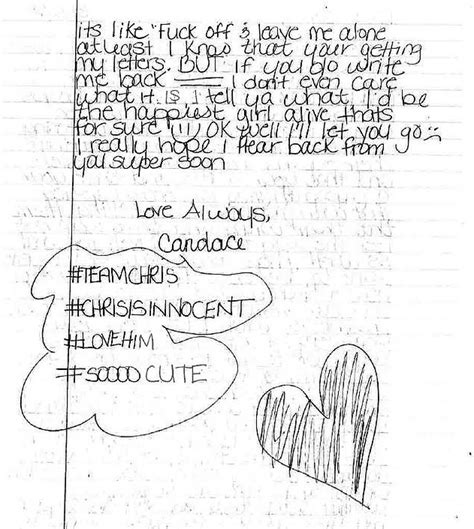 its like "Fuck off & leave me alone
atleast I know that your getting
my letters. BUT if you do write
me back —— I dont even care
what it is I tell ya what, I'd be
the happiest girl alive thats
for sure!!!) OK well I'll let you go
I really hope I hear back from
ya! super soon
Love Always,
Candace
#TEAMCHRIS
#CHRISISINNOCENT
#LOVEHIM
#SOOOO CUTE